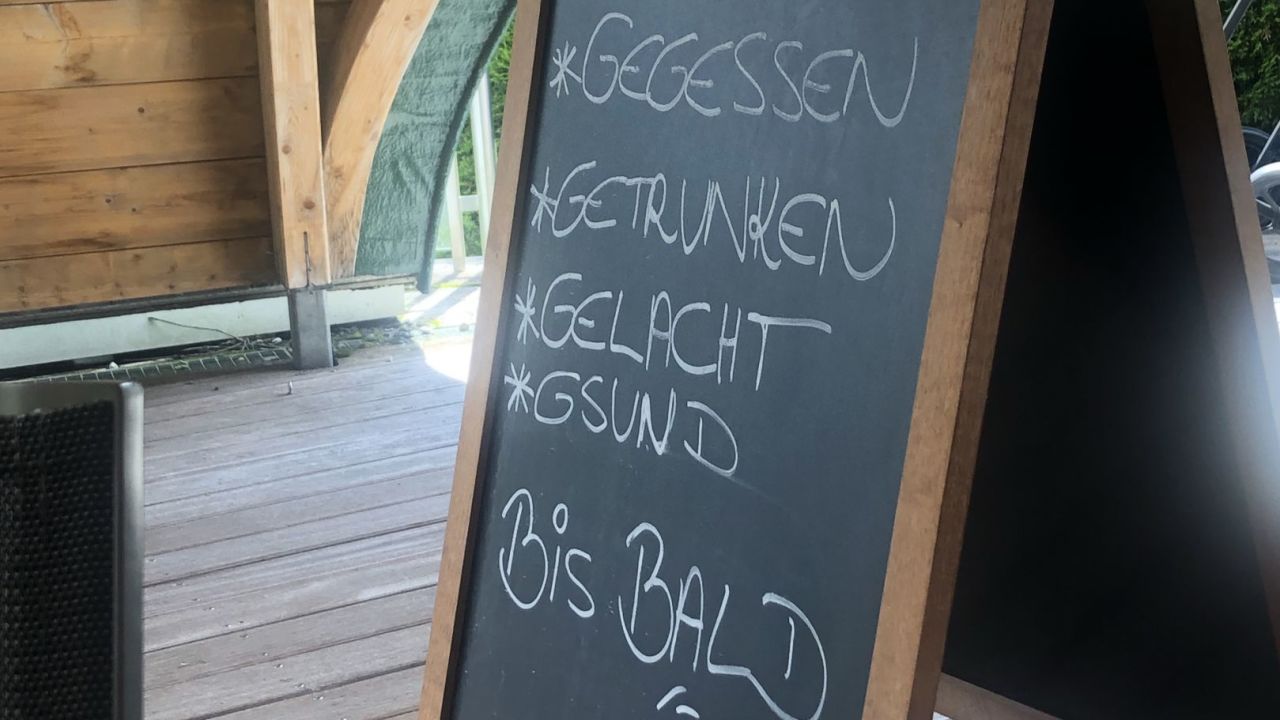 *GEGESSEN
*GETRUNKEN
*GELACHT
*GSUND
BiS BALD